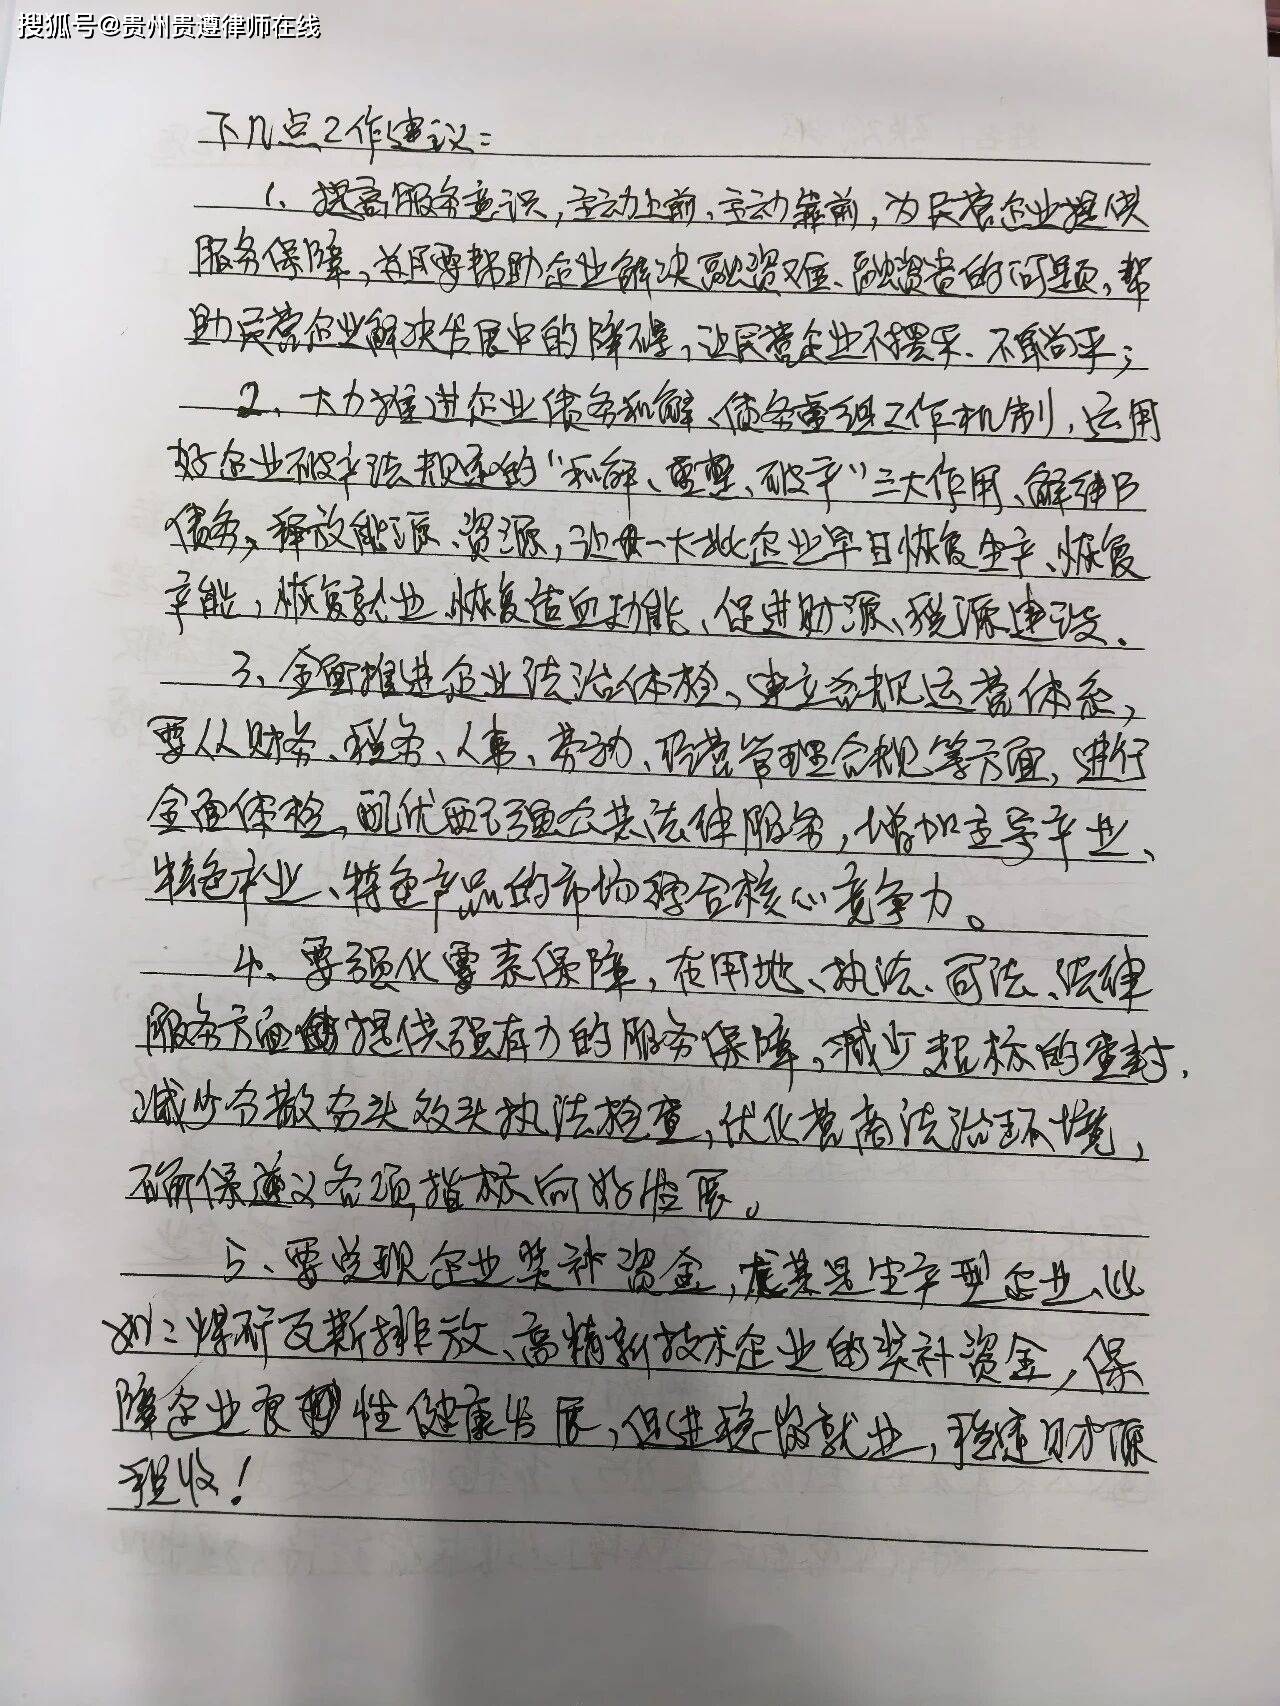 搜狐号@贵州贵遵律师在线
下几点工作建议：
1、提高服务意识，主动上前、主动靠前，为民营企业提供
服务保障，尤其要帮助企业解决融资难、融资贵的问题，帮
助民营企业解决发展中的障碍，让民营企业不摆乐、不躺平；
2、大力推进企业债务和解、债务重组工作机制，运用
好企业破产法规定的“和解、重整、破产”三大作用、解决
债务、释放能源、资源，让一大批企业早日恢复生产、恢复
产能，恢复就业、恢复造血功能、促进财源、税源建设、
3、全面推进企业法治体检，建立合规运营体系，
要从财务、税务、人事、劳动、经营管理合规等方面，进行
全面体检，配优配强公共法律服务，增加主导产业、
特色产业、特色产品的市场综合核心竞争力。
4、要强化要素保障，在用地、执法、司法、法律
服务方面提供强有力的服务保障，减少超标的查封，
减少分散多头执法检查，优化营商法治环境，
确保遵义各项指标向好发展。
5、要兑现企业奖补资金，尤其是生产型企业、比
如：煤矿瓦斯排放、高精新技术企业的奖补资金，保
障企业良性健康发展，促进稳岗就业，稳定财源
税收！